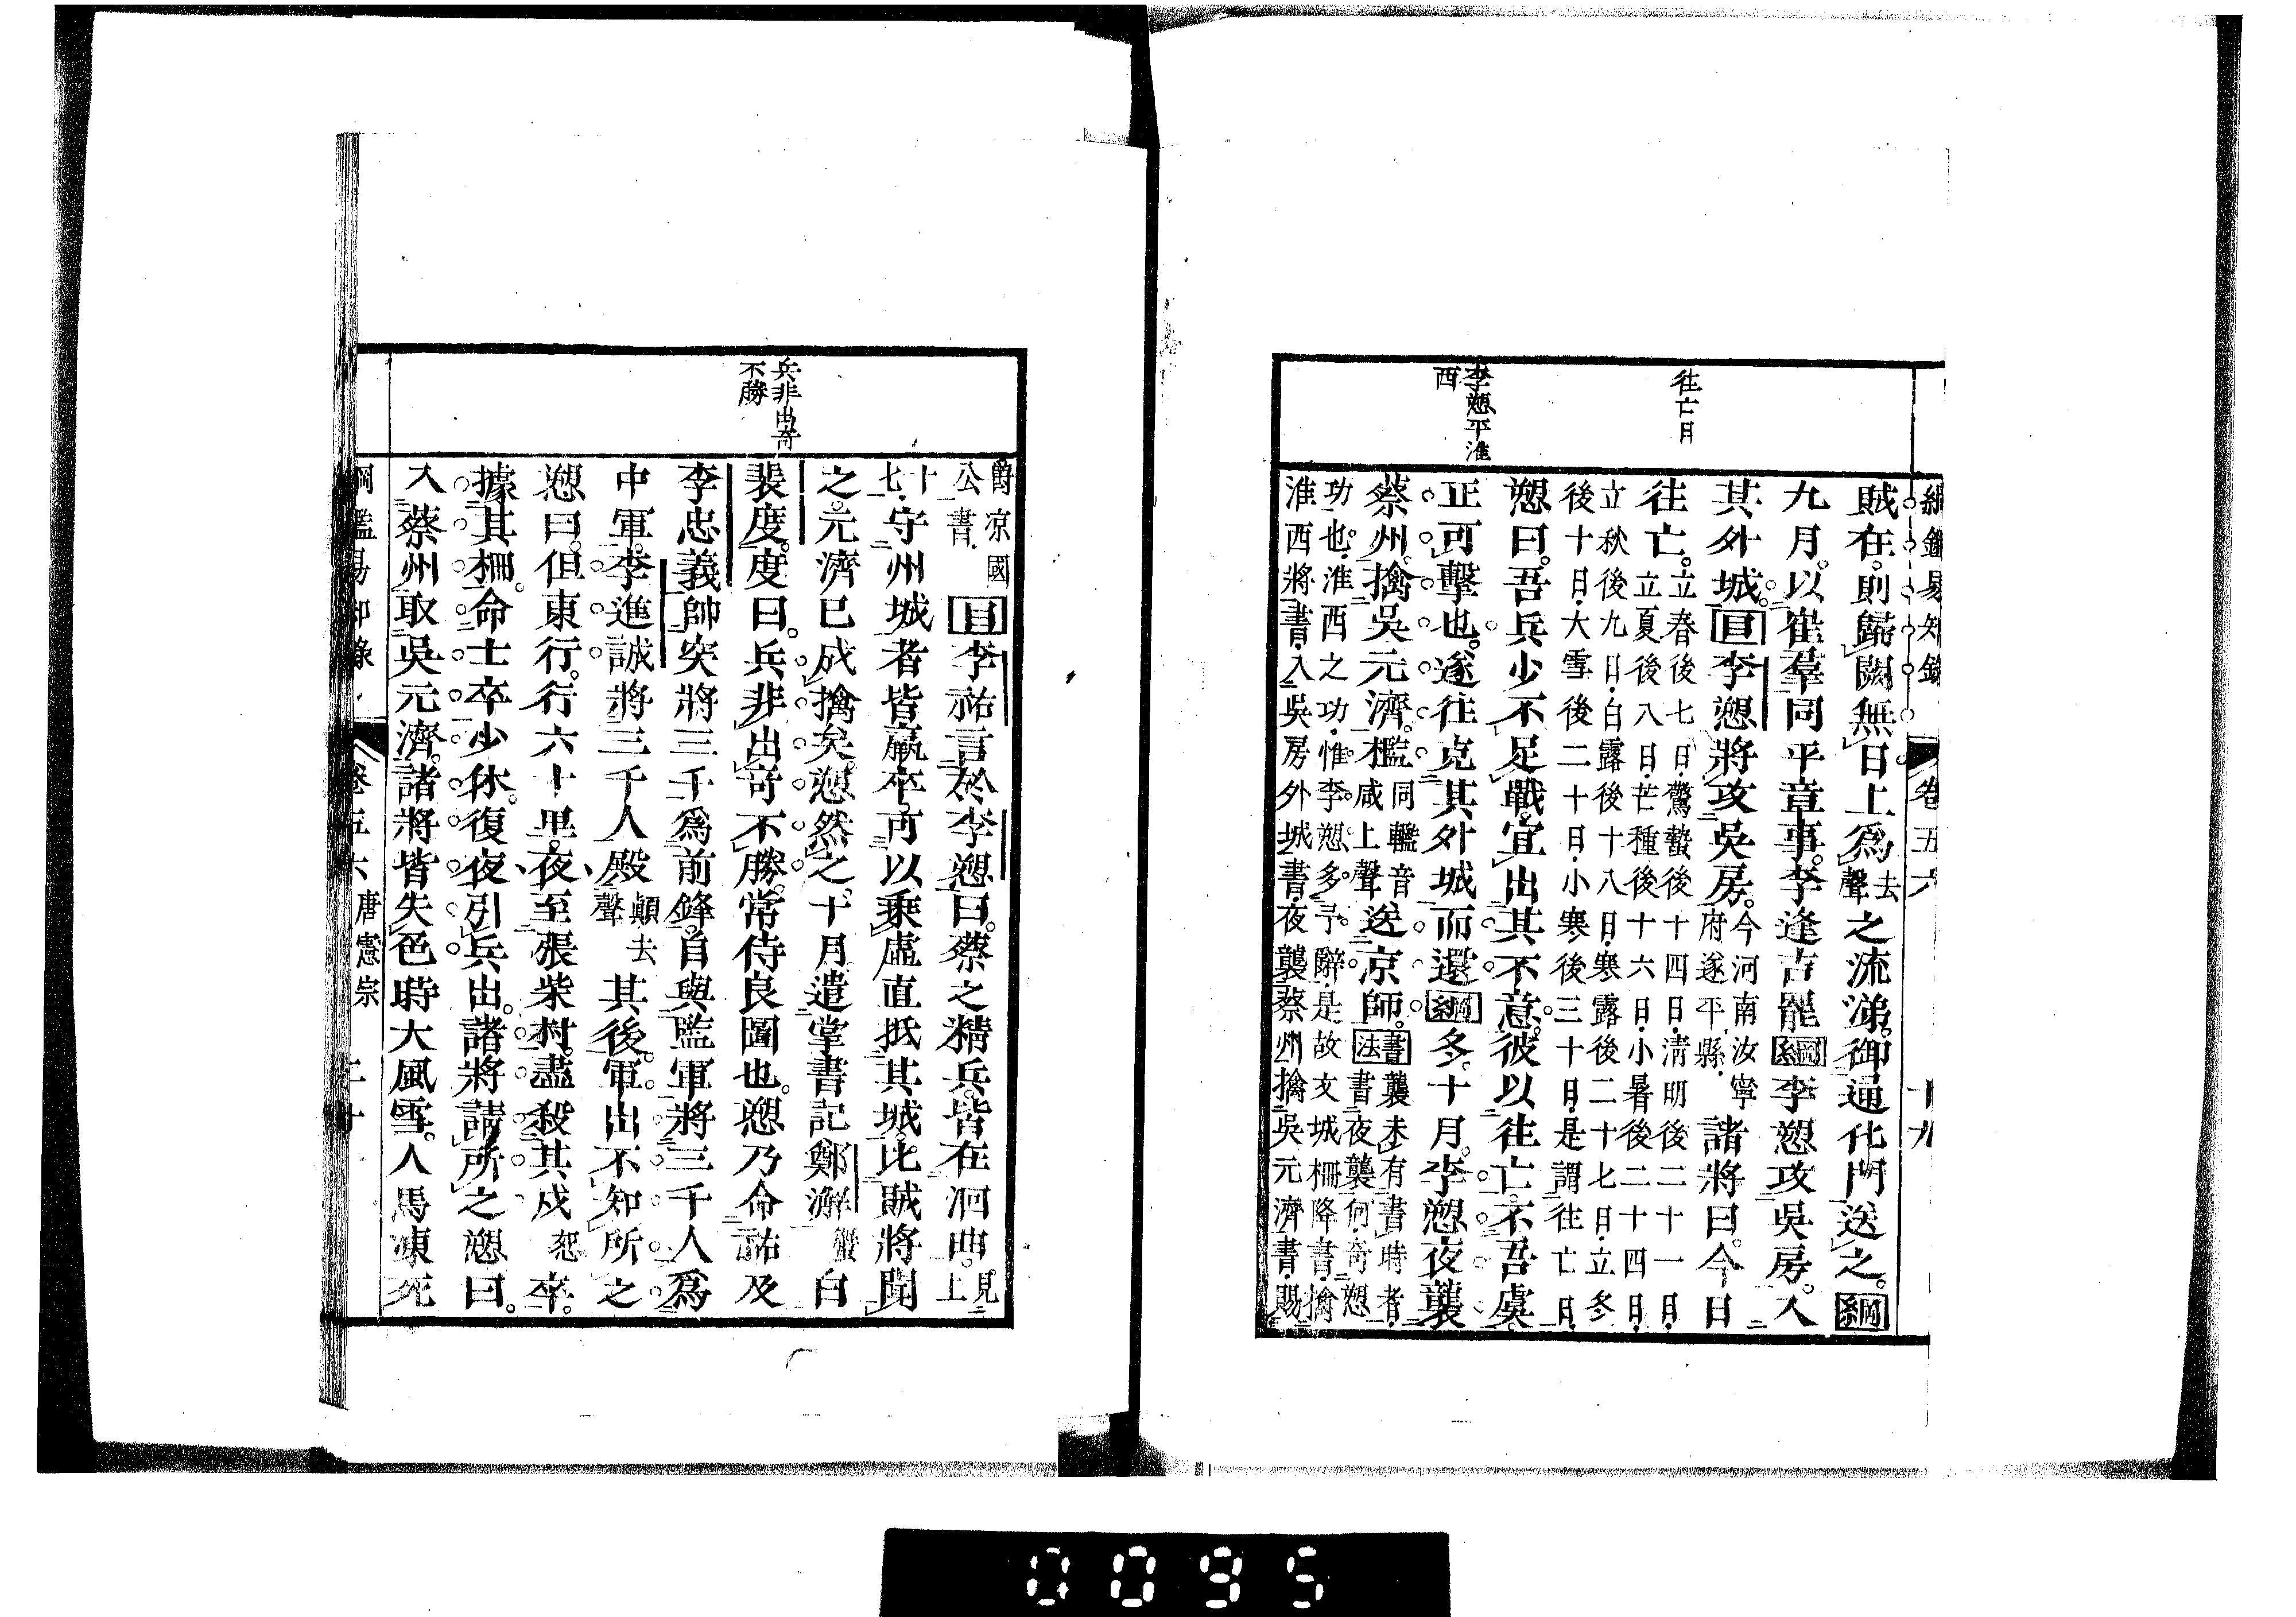 綱鑑易知錄 卷五六 十九
往亡日
李愬平淮
西
賊在則歸闕無日上為去聲之流涕御通化門送之綱
九月以崔羣同平章事李逢吉罷綱李愬攻吳房入
其外城目李愬將攻吳房今河南汝寧府遂平縣諸將曰今日
往亡立春後七日驚蟄後十四日清明後二十一日立夏後八日芒種後十六日小暑後二十四日
立秋後九日白露後十八日寒露後二十七日立冬後十日大雪後二十日小寒後三十日是謂往亡日
愬曰吾兵少不足戰宜出其不意彼以往亡不吾虞
正可擊也遂往克其外城而還綱冬十月李愬夜襲
蔡州擒吳元濟檻同轞音咸上聲送京師書法襲未有書時者書夜襲何奇愬
功也淮西之功惟李愬多予辭是故文城柵降書擒
淮西將書入吳房外城書夜襲蔡州擒吳元濟書賜
兵非出奇
不勝
爵涼國公書目李祐言於李愬曰蔡之精兵皆在洄曲見上
十七守州城者皆羸卒可以乘虛直抵其城比賊將聞
之元濟已成擒矣愬然之十月遣掌書記鄭澥蟹白
裴度度曰兵非出奇不勝常侍良圖也愬乃命祐及
李忠義帥突將三千為前鋒自與監軍將三千人為
中軍李進誠將三千人殿顛去聲其後軍出不知所之
愬曰但東行行六十里夜至張柴村盡殺其戍恕卒
據其柵命士卒少休復夜引兵出諸將請所之愬曰
入蔡州取吳元濟諸將皆失色時大風雪人馬凍死
綱鑑易知錄 卷五六 唐憲宗 二十
0095